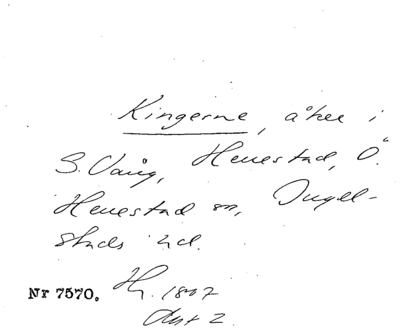 Kingerne, åker i
S. Vång, Herrestad, Ö.
Herrestad sn, Ingel-
stads hd.
Nr 7570. 1807
Akt 2